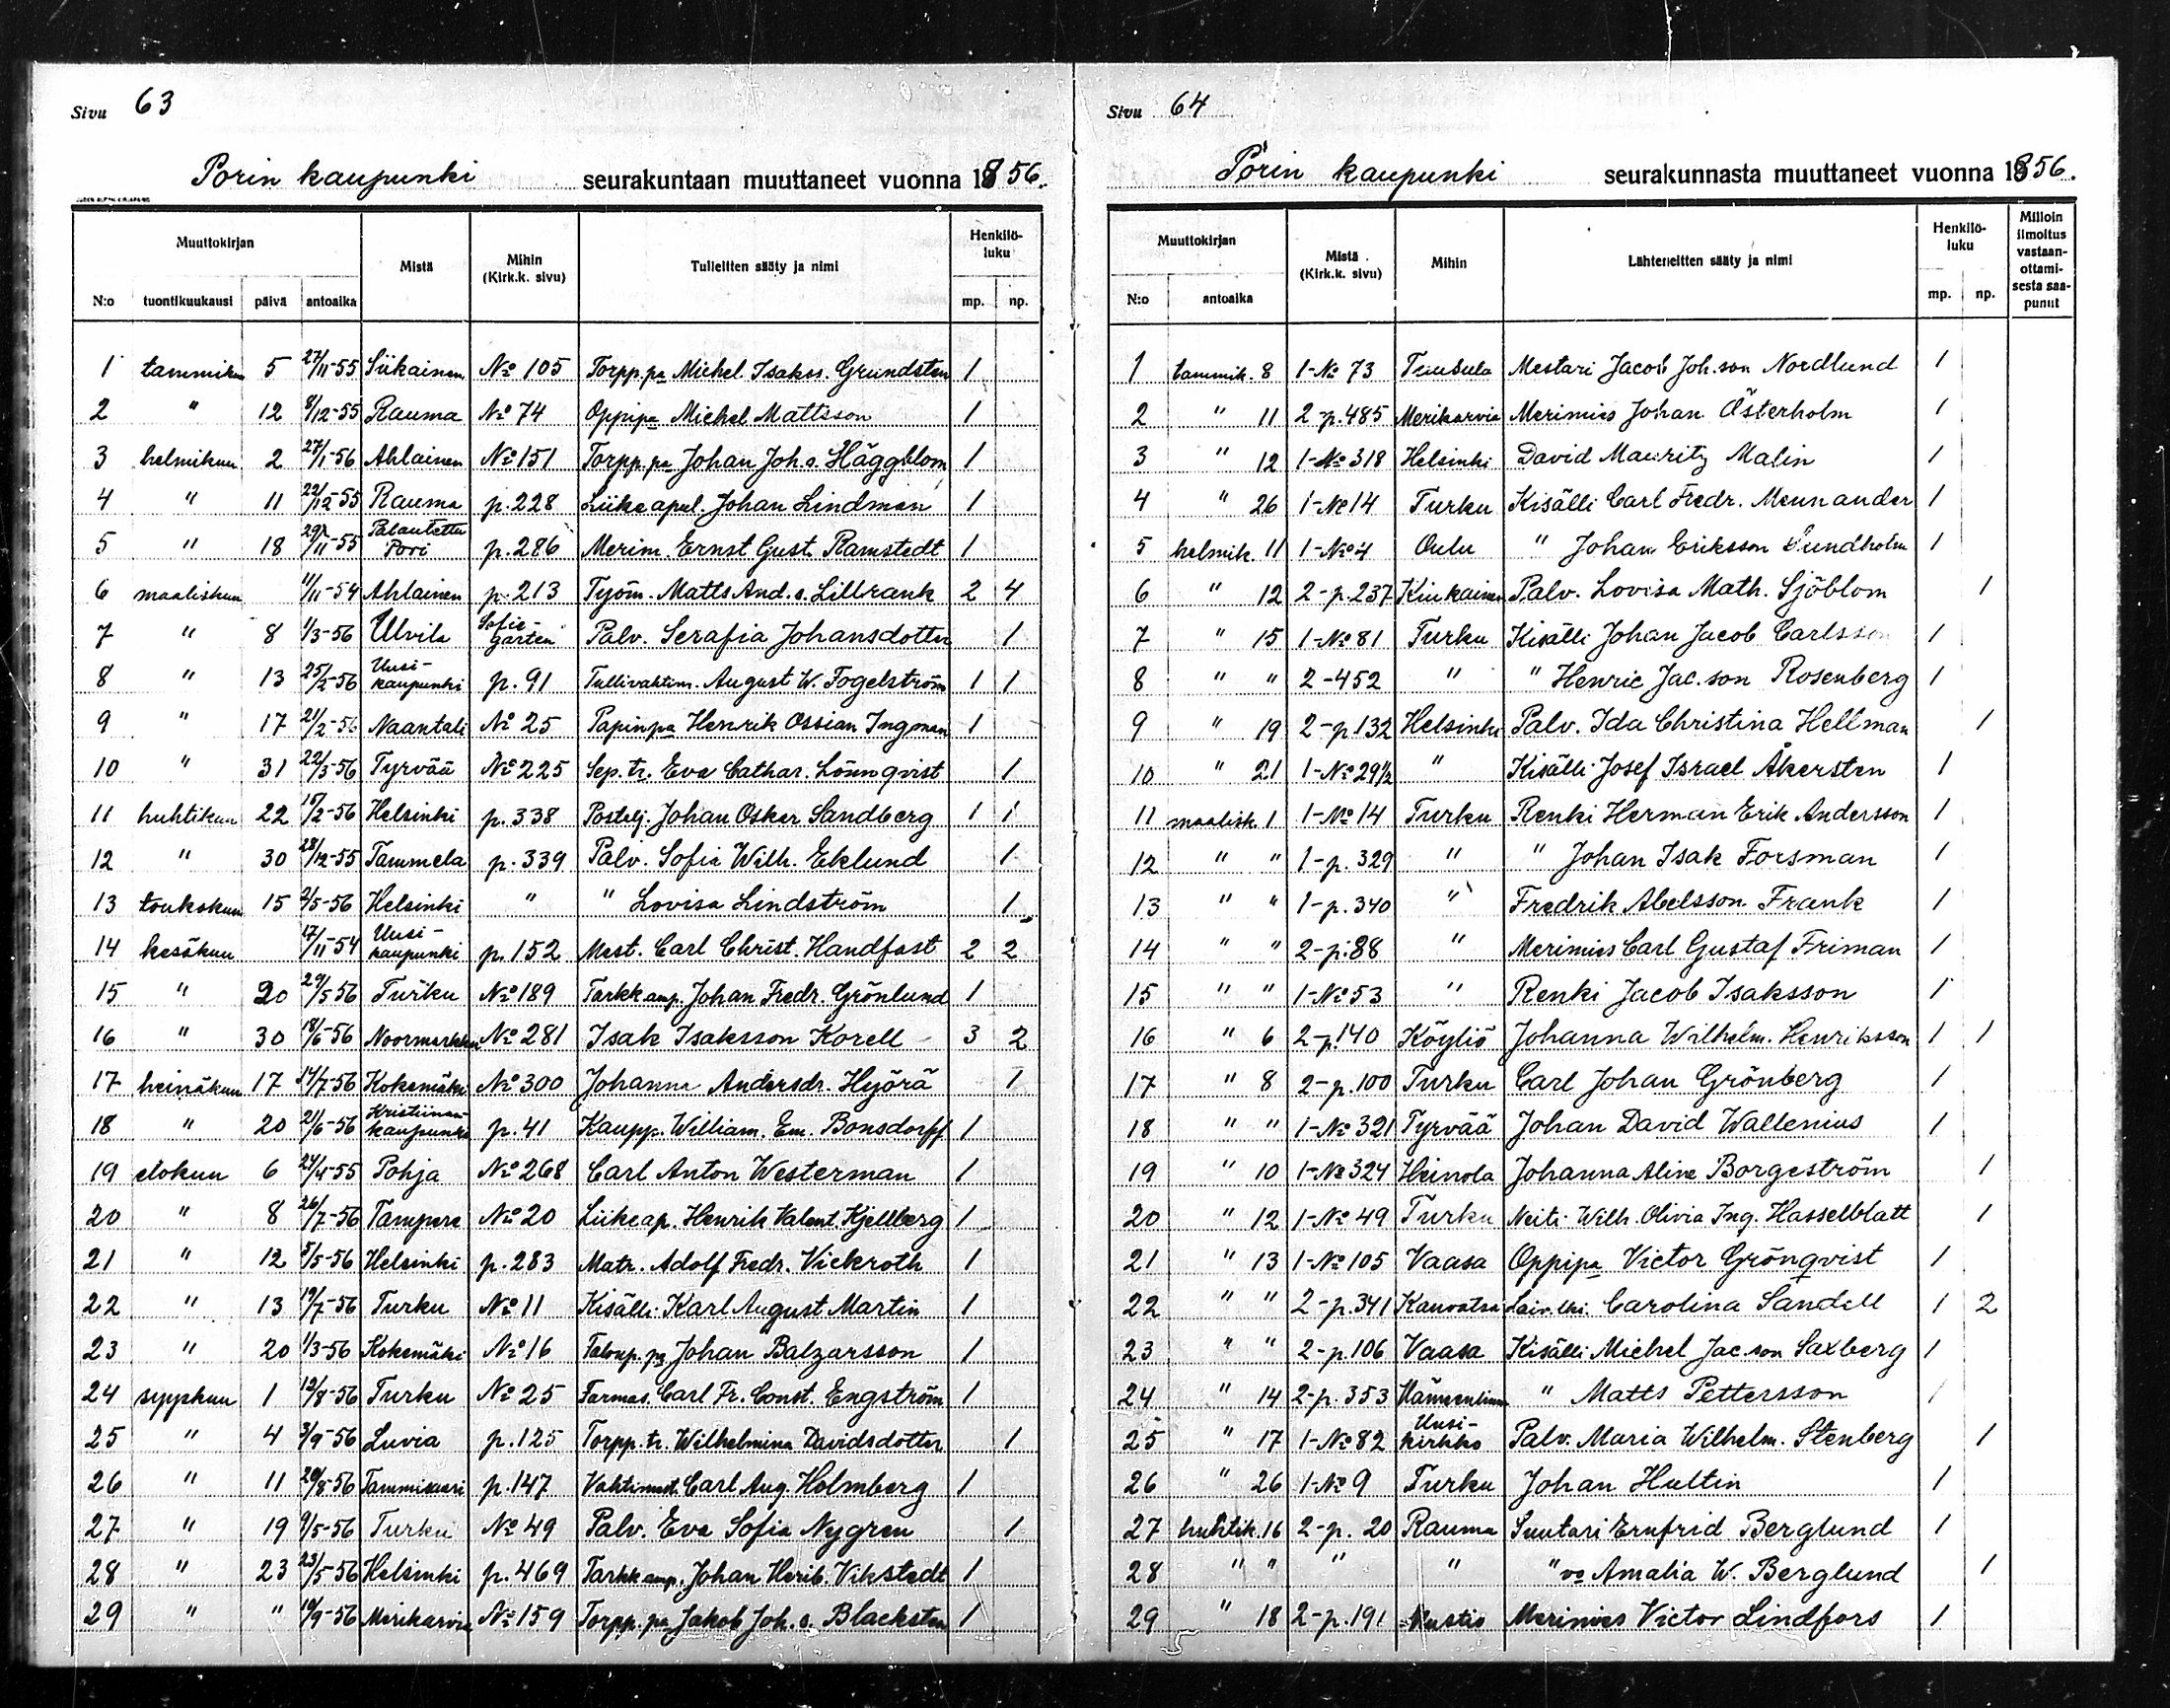 Sivu 63
Porin kaupunki seurakuntaan muuttaneet vuonna 1856.
Muuttokirjan
Mistä
Mihin (Kirk.k. sivu)
Tulleitten sääty ja nimi
Henkilö-luku
N:o tuontikuukausi päivä antoaika mp. np.
1 tammikuu 5 27/11-55 Siikainen No 105 Torpp.pa Michel Isakss. Grundsten 1
2 " 12 8/12-55 Rauma No 74 Oppipa Michel Mattsson 1
3 helmikuu 2 27/1-56 Ahlainen No 151 Torpp.pa Johan Joh.s. Häggblom 1
4 " 11 22/12-55 Rauma p.228 Liikeapul. Johan Lindman 1
5 " 18 29/11-55 Palautettu Pori p.286 Merim. Ernst Gust. Ramstedt 1
6 maaliskuu 11/11-54 Ahlainen p.213 Työm. Matts And.s. Lillrank 2 4
7 " 8 1/3-56 Ulvila Sofie-garten Palv. Serafia Johansdotter 1
8 " 13 25/2-56 Uusi-kaupunki p.91 Tullivahtim. August W. Fogelström 1 1
9 " 17 21/2-56 Naantali No 25 Papinpa Henrik Ossian Ingman 1
10 " 31 22/3-56 Tyrvää No 225 Sep. tr. Eva Cathar. Lönnqvist 1
11 huhtikuu 22 15/2-56 Helsinki p.338 Postelj. Johan Oskar Sandberg 1 1
12 " 30 28/12-55 Tammela p.339 Palv. Sofia Wilh. Eklund 1
13 toukokuu 15 2/5-56 Helsinki " " Lovisa Lindström 1
14 kesäkuu 17/11-54 Uusi-kaupunki p.152 Mest. Carl Christ. Handfast 2 2
15 " 20 29/5-56 Turku No 189 Tarkk amp. Johan Fredr. Grönlund 1
16 " 30 18/6-56 Noormarkku No 281 Isak Isaksson Korell 3 2
17 heinäkuu 17 14/7-56 Kokemäki No 300 Johanna Andersdr. Hyörä 1
18 " 20 21/6-56 Kristiinan-kaupunki p.41 Kaupp. William. Em. Bonsdorff 1
19 elokuu 6 24/4-55 Pohja No 268 Carl Anton Westerman 1
20 " 8 26/7-56 Tampere No 20 Liikeap. Henrik Valent. Kjellberg 1
21 " 12 5/5-56 Helsinki p.283 Matr. Adolf Fredr. Vickroth 1
22 " 13 19/7-56 Turku No 11 Kisälli Karl August Martin 1
23 " 20 1/3-56 Kokemäki No 16 Taloup. pa Johan Balzarsson 1
24 syyskuu 1 12/8-56 Turku No 25 Farmas. Carl Fr. Const. Engström 1
25 " 4 3/9-56 Luvia p.125 Torpp. tr. Wilhelmina Davidsdotter 1
26 " 11 20/8-56 Tammisaari p.147 Vahtimest. Carl Aug. Holmberg 1
27 " 19 9/5-56 Turku No 49 Palv. Eva Sofia Nygren 1
28 " 23 23/5-56 Helsinki p.469 Tarkk amp. Johan Herib. Vikstedt 1
29 " " 10/9-56 Merikarvia No 159 Torpp.pa Jakob Joh.s. Blacksten 1
Sivu 64
Porin kaupunki seurakunnasta muuttaneet vuonna 1856.
Muuttokirjan
Mistä (Kirk.k. sivu)
Mihin
Lähteneitten sääty ja nimi
Henkilö-luku
Milloin ilmoitus vastaan-ottami-sesta saa-punut
N:o antoaika mp. np.
1 tammik. 8 1-No 73 Tuusula Mestari Jacob Joh.son Nordlund 1
2 " 11 2-p.485 Merikarvia Merimies Johan Österholm 1
3 " 12 1-No 318 Helsinki David Mauritz Malin 1
4 " 26 1-No 14 Turku Kisälli Carl Fredr. Mennander 1
5 helmik. 11 1-No 4 Oulu " Johan Eriksson Sundholm 1
6 " 12 2-p.237 Kiukainen Palv. Lovisa Math. Sjöblom 1
7 " 15 1-No 81 Turku Kisälli Johan Jacob Carlsson 1
8 " " 2-452 " " Henric Jac.son Rosenberg 1
9 " 19 2-p.132 Helsinki Palv. Ida Christina Hellman 1
10 " 21 1-No 29½ " Kisälli Josef Israel Åkersten 1
11 maalisk. 1 1-No 14 Turku Renki Herman Erik Andersson 1
12 " " 1-p.329 " " Johan Isak Forsman 1
13 " " 1-p.340 " Fredrik Abelsson Frank 1
14 " " 2-p.88 " Merimies Carl Gustaf Friman 1
15 " " 1-No 53 " Renki Jacob Isaksson 1
16 " 6 2-p.140 Köyliö Johanna Wilhelm. Henriksson 1 1
17 " 8 2-p.100 Turku Carl Johan Grönberg 1
18 " " 1-No 321 Tyrvää Johan David Wallenius 1
19 " 10 1-No 324 Heinola Johanna Alina Borgeström 1
20 " 12 1-No 49 Turku Neiti Wilh. Olivia Ing. Hasselblatt 1
21 " 13 1-No 105 Vaasa Oppipa Victor Grönqvist 1
22 " " 2-p.341 Kauvatsa Carolina Sandell 1 2
23 " " 2-p.106 Vaasa Kisälli Michel Jac.son Saxberg 1
24 " 14 2-p.353 Hämeenlinna " Matts Pettersson 1
25 " 17 1-No 82 Uusi-kirkko Palv. Maria Wilhelm. Stenberg 1
26 " 26 1-No 9 Turku Johan Hultin 1
27 huhtik. 16 2-p. 20 Rauma Suutari Ernfrid Berglund 1
28 " " " " " vo Amalia W. Berglund 1
29 " 18 2-p.191 Merimies Victor Lindfors 1